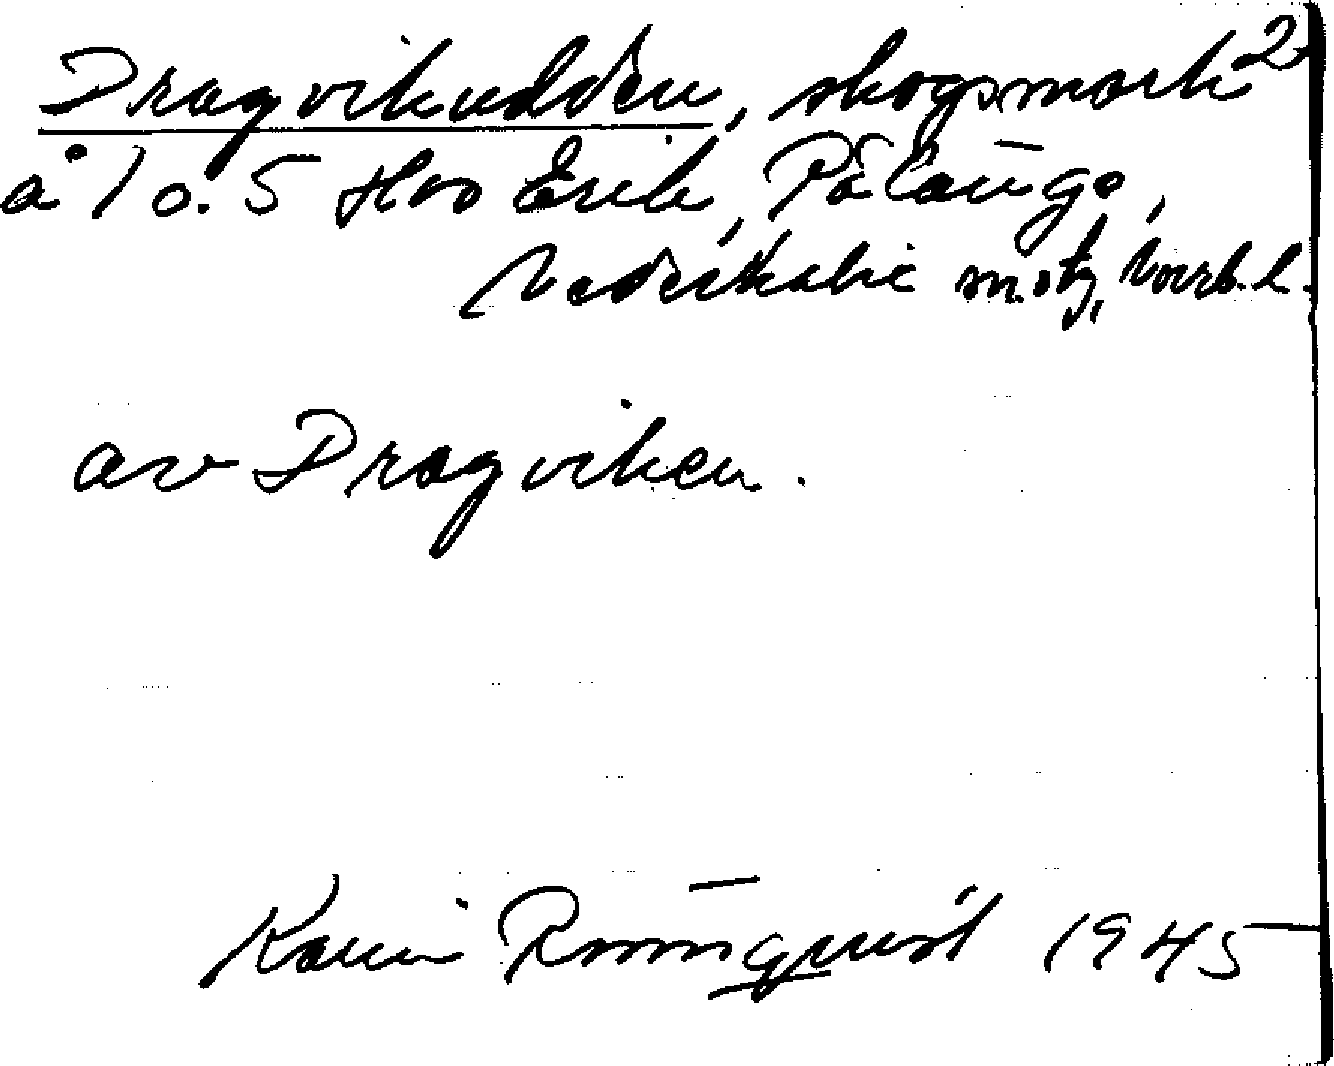 Dragvikudden, skogsmark 2
å 1 o. 5 Hos Erik, Pålänge,
Nederkalix sn. o tg, Norrb. l.
av Dragviken.
Karin Rönnqvist 1945